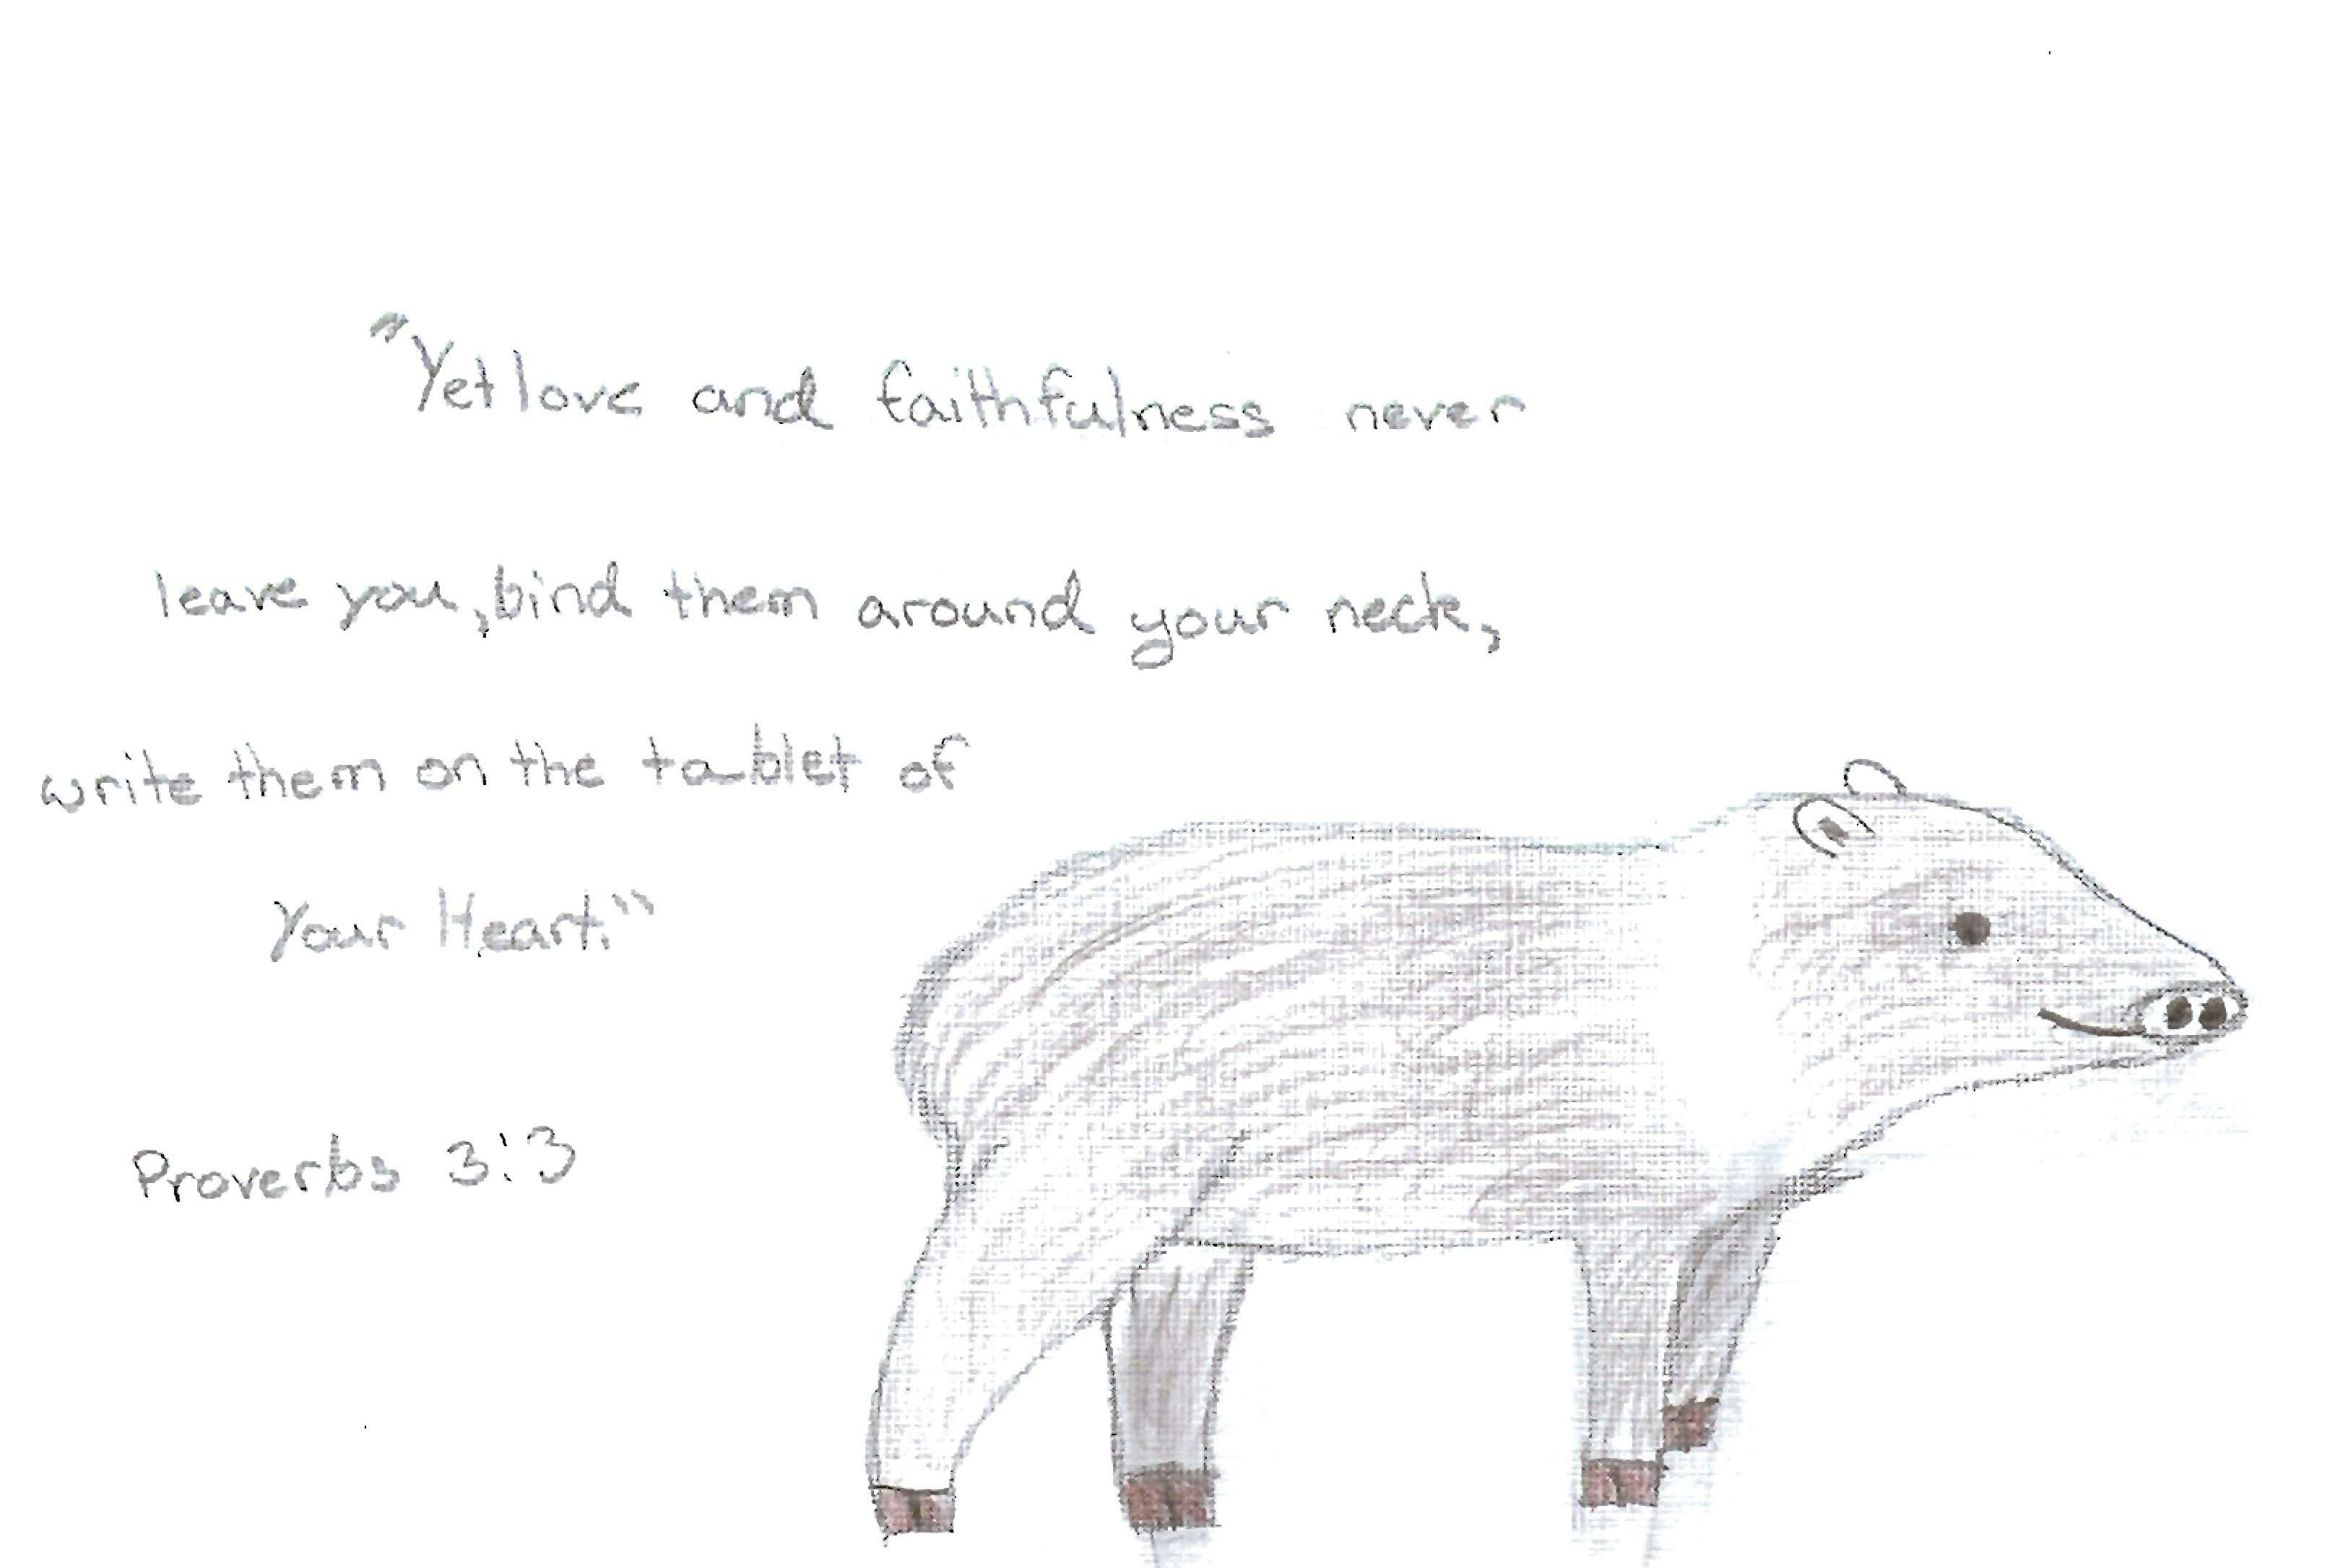 "Yet love and faithfulness never
leave you, bind them around your neck,
write them on the tablet of
Your Heart."
Proverbs 3:3